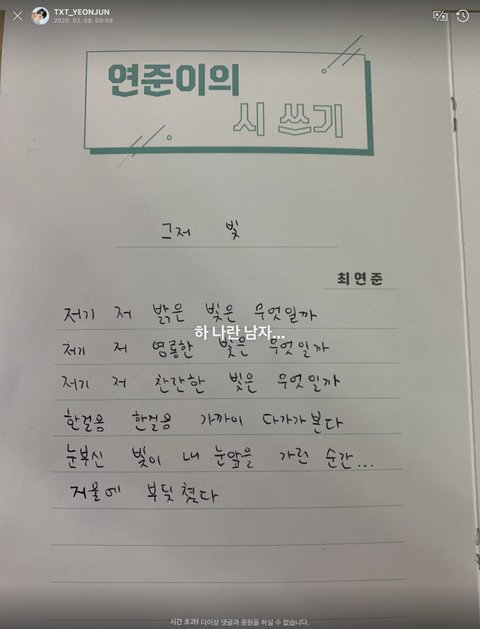 TXT_YEONJUN
2020. 02. 08. 00:58
연준이의
시 쓰기
그저 빛
최연준
저기 저 밝은 빛은 무엇일까
하 나란 남자...
저기 저 영롱한 빛은 무엇일까
저기 저 찬란한 빛은 무엇일까
한걸음 한걸음 가까이 다가가본다
눈부신 빛이 내 눈앞을 가린 순간...
거울에 부딪쳤다
시간 초과! 더이상 댓글과 응원을 하실 수 없습니다.